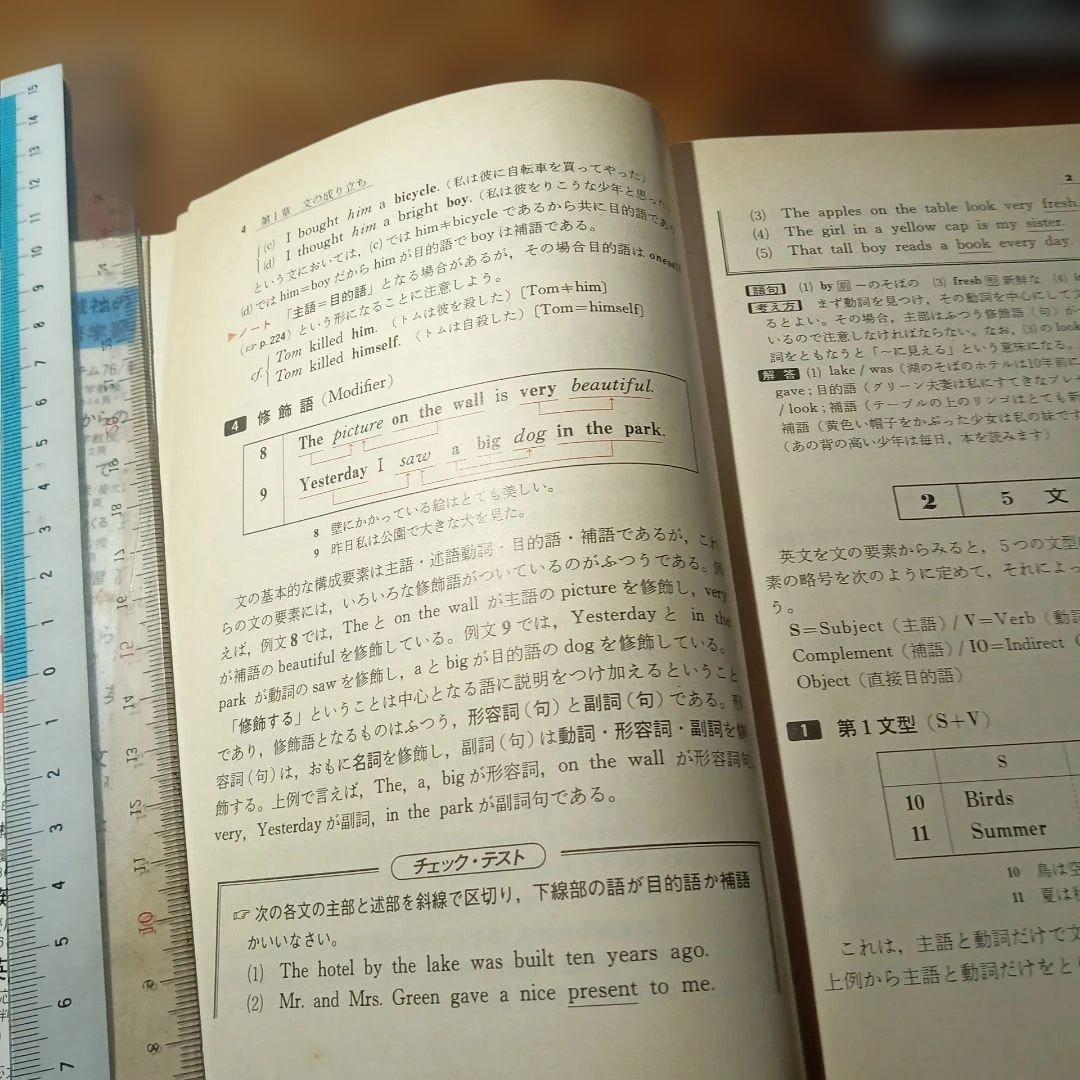 4 第1章 文の成り立ち
(c) I bought him a bicycle.（私は彼に自転車を買ってやった）
(d) I thought him a bright boy.（私は彼をりこうな少年と思った
という文においては，(c)ではhim≠bicycleであるから共に目的語であり
(d)ではhim=boyだからhimが目的語でboyは補語である。
▶ノート 「主語=目的語」となる場合があるが，その場合目的語は oneself
(☞p.224)という形になることに注意しよう。
cf. Tom killed him.（トムは彼を殺した）[Tom≠him]
Tom killed himself.（トムは自殺した）[Tom=himself]
4 修飾語（Modifier）
8 The picture on the wall is very beautiful.
9 Yesterday I saw a big dog in the park.
8 壁にかかっている絵はとても美しい。
9 昨日私は公園で大きな犬を見た。
文の基本的な構成要素は主語・述語動詞・目的語・補語であるが，これ
らの文の要素には，いろいろな修飾語がついているのがふつうである。例
えば，例文8では，Theと on the wall が主語の picture を修飾し，very
が補語の beautiful を修飾している。例文9では，Yesterday と in the
park が動詞の saw を修飾し，a と big が目的語の dog を修飾している。
「修飾する」ということは中心となる語に説明をつけ加えるということ
であり，修飾語となるものはふつう，形容詞（句）と副詞（句）である。形
容詞（句）は，おもに名詞を修飾し，副詞（句）は動詞・形容詞・副詞を修
飾する。上例で言えば，The, a, big が形容詞，on the wall が形容詞句，
very, Yesterday が副詞，in the park が副詞句である。
チェック・テスト
☞ 次の各文の主部と述部を斜線で区切り，下線部の語が目的語か補語
かいいなさい。
(1) The hotel by the lake was built ten years ago.
(2) Mr. and Mrs. Green gave a nice present to me.
2
(3) The apples on the table look very fresh.
(4) The girl in a yellow cap is my sister.
(5) That tall boy reads a book every day.
語句 (1) by 前 ～のそばの (3) fresh 形 新鮮な (4)
考え方 まず動詞を見つけ，その動詞を中心にして
るとよい。その場合，主部はふつう修飾語（句）が
いるので注意しなければならない。なお，(3)のlook
詞をともなうと「～に見える」という意味になる。
解答 (1) lake / was（湖のそばのホテルは10年前に
gave；目的語（グリーン夫妻は私にすてきなプレ
/ look；補語（テーブルの上のリンゴはとても新
補語（黄色い帽子をかぶった少女は私の妹です
（あの背の高い少年は毎日，本を読みます）
2 5 文
英文を文の要素からみると，5つの文型
素の略号を次のように定めて，それによっ
う。
S=Subject（主語）/ V=Verb（動詞
Complement（補語）/ IO=Indirect
Object（直接目的語）
1 第1文型（S+V）
S
10 Birds
11 Summer
10 鳥は空
11 夏は
これは，主語と動詞だけで文
上例から主語と動詞だけをと
15
14
13
12
11
10
9
8
7
6
5
4
3
2
1
0
1
2
3
4
5
6
7
18
17
16
15
14
13
12
11
10
9
8